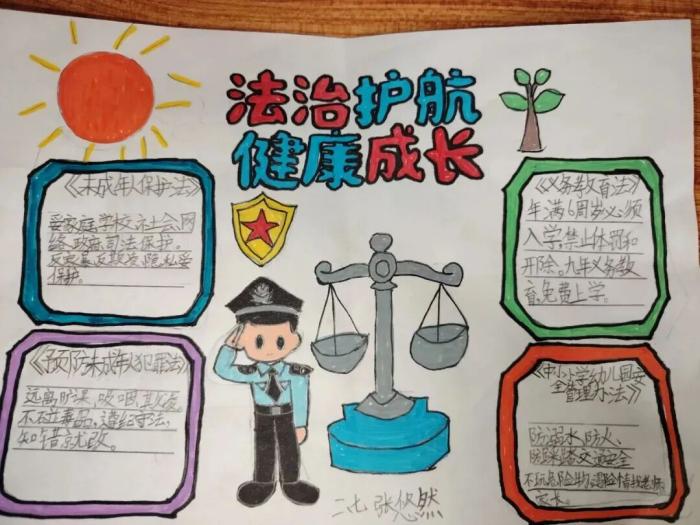 法治护航
健康成长
《未成年人保护法》
受家庭学校、社会、网
络、政府司法保护。
反家暴反欺凌,隐私受
保护。
《义务教育法》
年满6周岁必须
入学,禁止体罚和
开除。九年义务教
育,免费上学。
《预防未成年人犯罪法》
远离旷课、吸烟、欺凌,
不碰毒品,遵纪守法,
知错就改。
《中小学幼儿园安
全管理办法》
防溺水、防火、
防踩踏交通安全
不玩危险物,遇险情找老师、
家长。
二七 张悠然